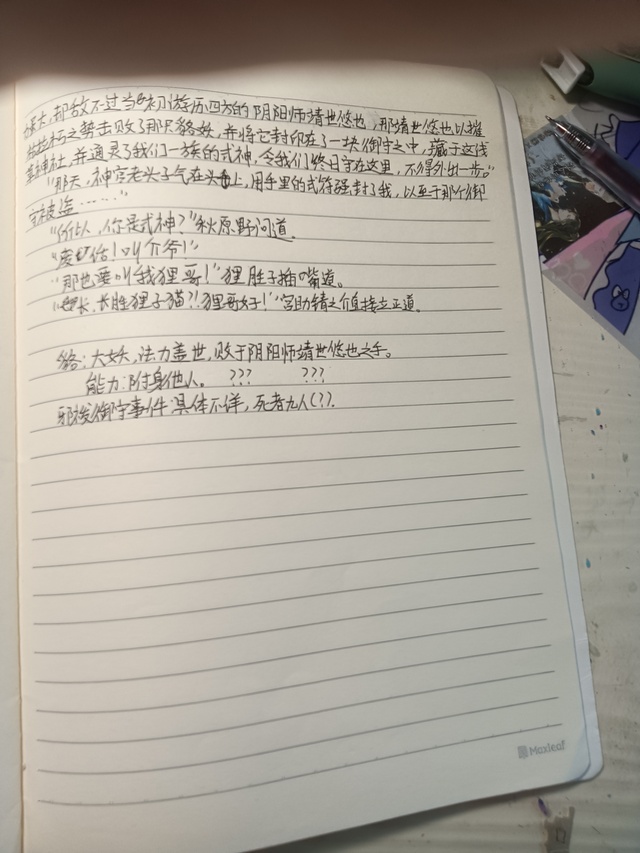 却敌不过当时初游历四方的阴阳师靖世悠也,那靖世悠也以摧
枯拉朽之势击败了那只貉妖,并将它封印在了一块御守之中,藏于这线
神社,并通灵了我们一族的式神,令我们终日守在这里,不得外出一步。"
"那天,神宫老头子气在头上,用手里的式符强封了我,以至于那个御
守被盗……"
"什么,你是式神?"秋原野问道。
"废话!叫介爷!"
"那也要叫我狸哥!"狸胜子插嘴道。
长,长胜狸子猫?!狸哥好!"宫助错之介直接立正道。
貉:大妖,法力盖世,败于阴阳师靖世悠也之手。
能力:附身他人。 ??? ???
邪祓御守事件:具体不详,死者九人(??.
Maxleaf